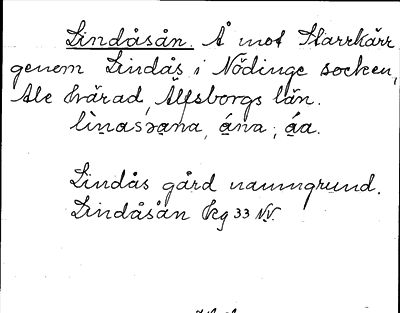 Lindåsån. Å mot Starrkärr
genom Lindås i Nödinge socken,
Ale härad, Älfsborgs län.
lìnasɔana, ána; áa.
Lindås gård namngrund.
Lindåsån Ekg 33 NV.